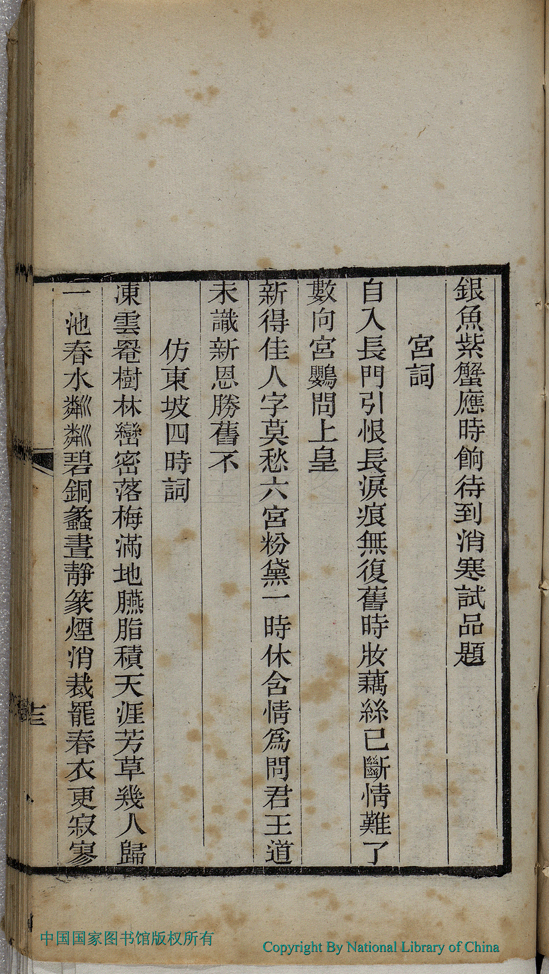 銀魚紫蟹應時餉待到消寒試品題
宮詞
自入長門引恨長淚痕無復舊時妝藕絲已斷情難了
數向宮鸚問上皇
新得佳人字莫愁六宮粉黛一時休含情為問君王道
未識新恩勝舊不
仿東坡四時詞
凍雲罨樹林巒密落梅滿地臙脂積天涯芳草幾人歸
一池春水粼粼碧銅蠡晝靜篆煙消裁罷春衣更寂寥
十三
中国国家图书馆版权所有
Copyright By National Library of China